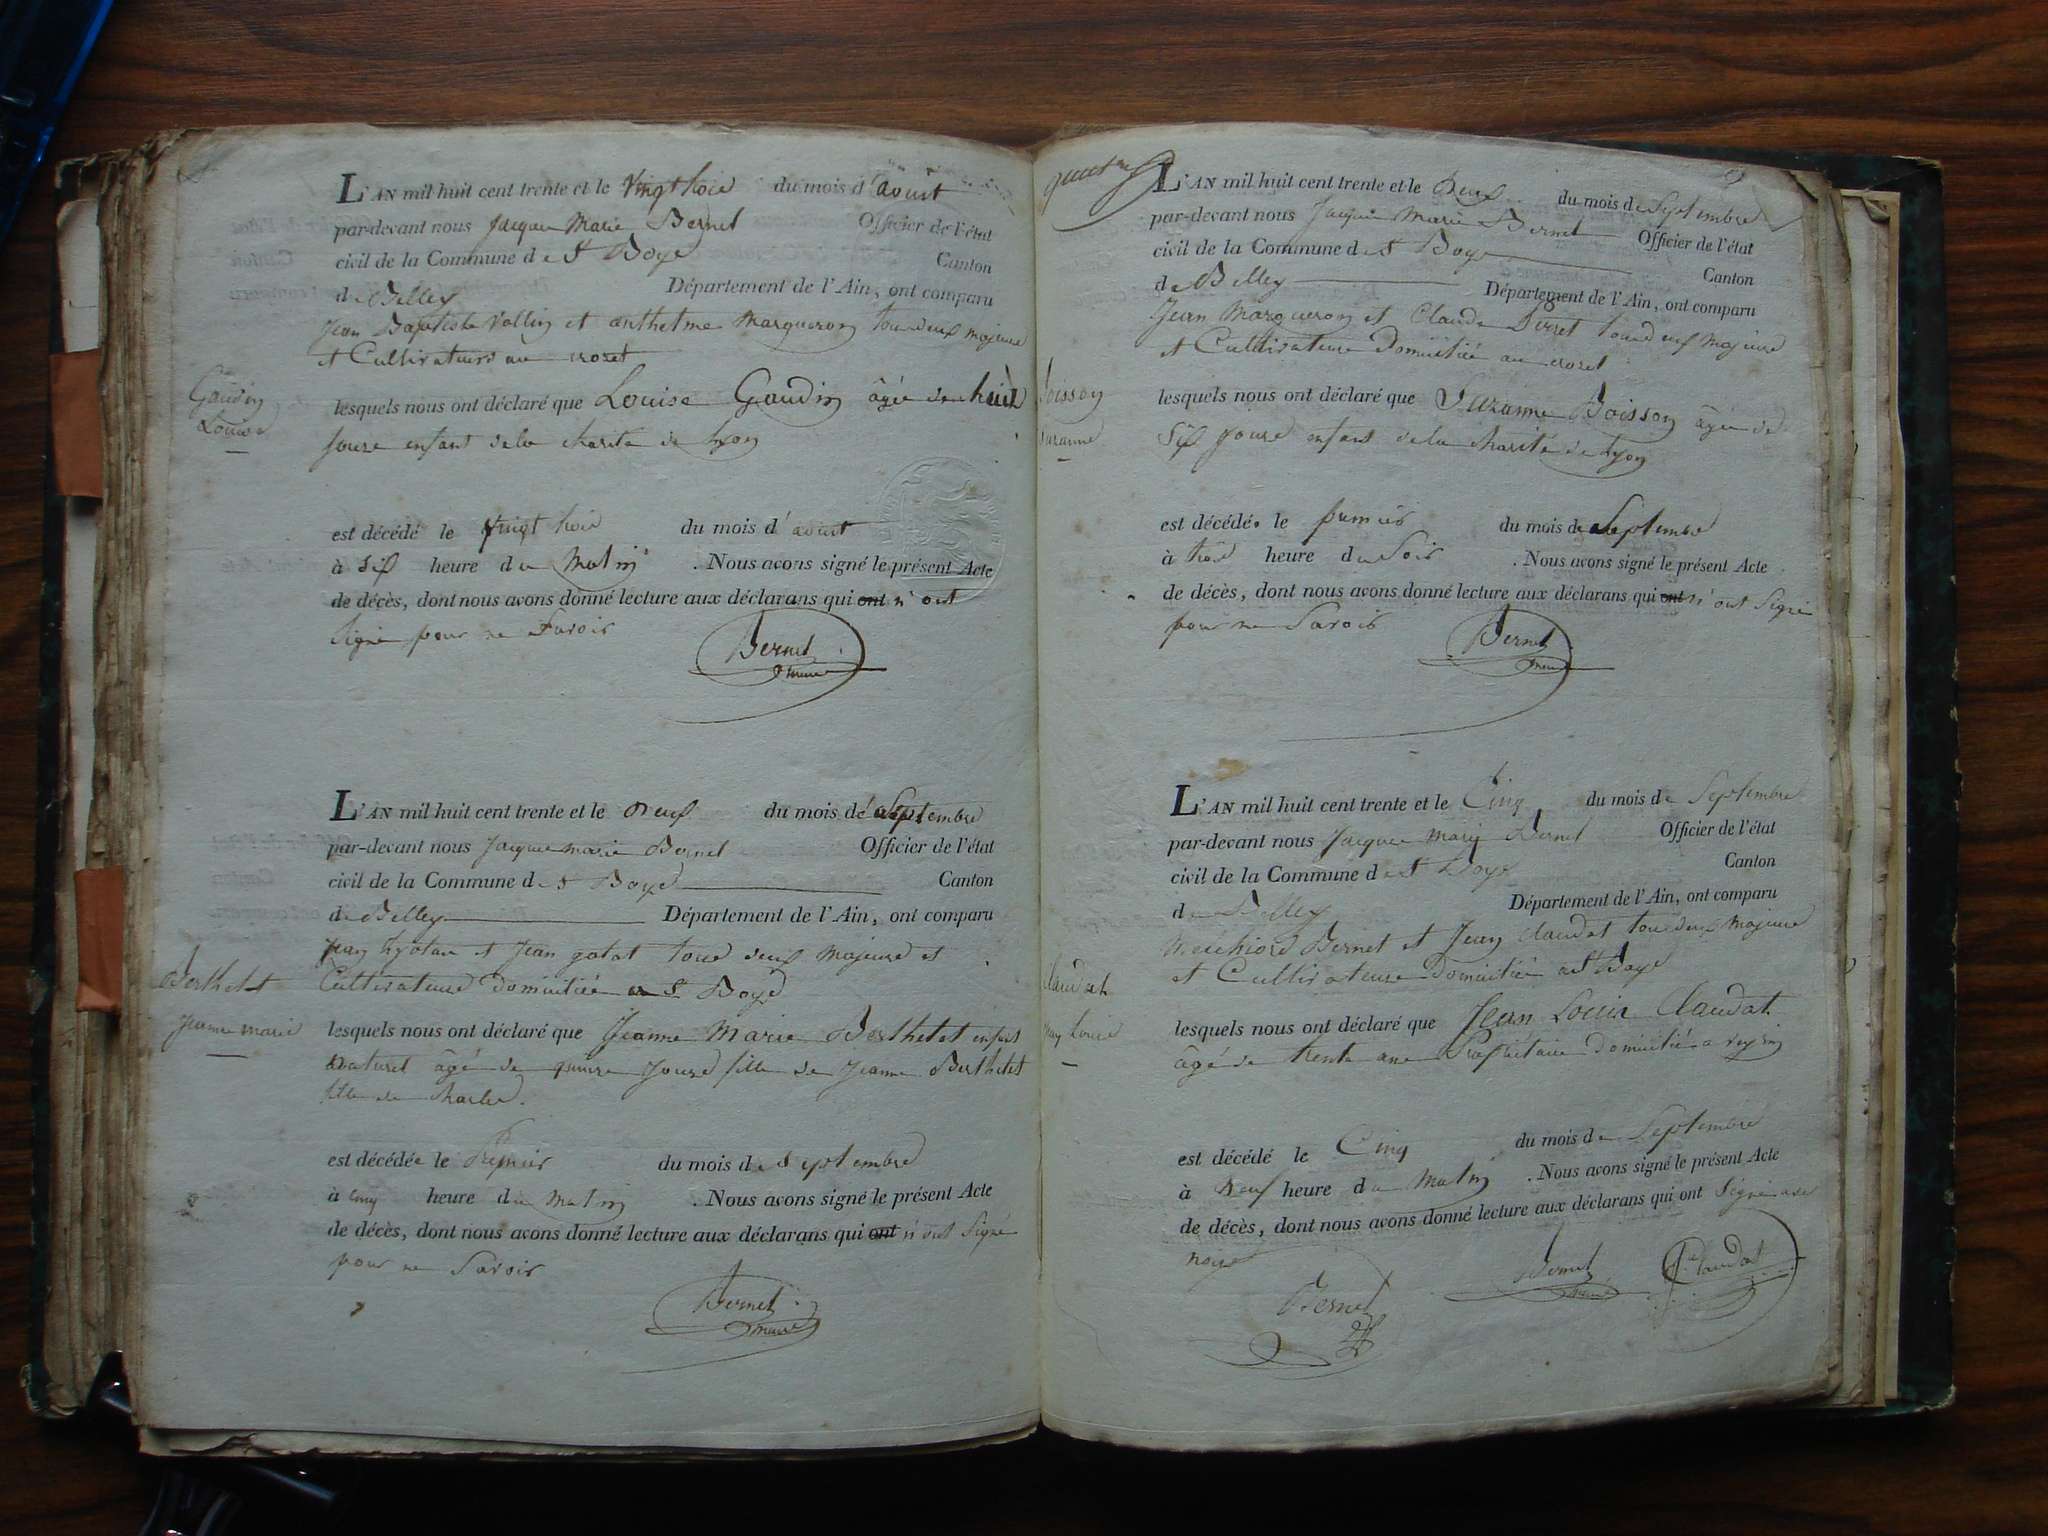 L'AN mil huit cent trente et le vingt trois du mois d'aoust
par-devant nous Jacques Marie Bernet Officier de l'état
civil de la Commune de St Boys Canton
de Belley Département de l'Ain, ont comparu
Jean Baptiste Vallin et anthelme Margueron tous deux majeurs
et Cultivateurs au crozet
Gaudin
Louise
lesquels nous ont déclaré que Louise Gaudin âgée de huit
jours enfant de la charité de Lyon
est décédé le vingt trois du mois d'aoust
à six heure du Matin . Nous avons signé le présent Acte
de décès, dont nous avons donné lecture aux déclarans qui ont n'ont
signé pour ne Savoir
Bernet
maire
L'AN mil huit cent trente et le deux du mois de Septembre
par-devant nous Jacques marie Bernet Officier de l'état
civil de la Commune de St Boys Canton
de Belley Département de l'Ain, ont comparu
Jean et Jean tous deux majeurs et
Cultivateurs domiciliés a St Boys
Berthet
Jeanne marie
lesquels nous ont déclaré que Jeanne Marie Berthet enfant
naturel âgé de quinze Jours fille de Jeanne Berthet
fille de Charles.
est décédée le Premier du mois de Septembre
à cinq heure du matin . Nous avons signé le présent Acte
de décès, dont nous avons donné lecture aux déclarans qui ont n'ont Signé
pour ne Savoir
Bernet
maire
L'AN mil huit cent trente et le deux du mois de Septembre
par-devant nous Jacques Marie Bernet Officier de l'état
civil de la Commune de St Boys Canton
de Belley Département de l'Ain, ont comparu
Jean Margueron et Claude tous deux majeurs
et Cultivateurs Domiciliés au crozet
Boisson
Suzanne
lesquels nous ont déclaré que Suzanne Boisson âgée de
Six jours enfant de la charité de Lyon
est décédée le premier du mois de Septembre
à trois heure du Soir . Nous avons signé le présent Acte
de décès, dont nous avons donné lecture aux déclarans qui ont n'ont Signé
pour ne Savoir
Bernet
maire
L'AN mil huit cent trente et le Cinq du mois de Septembre
par-devant nous Jacques marie Bernet Officier de l'état
civil de la Commune de St Boys Canton
de Belley Département de l'Ain, ont comparu
Melchiord Bernet et Jean Claudat tous deux majeurs
et Cultivateurs Domiciliés a St Boys
Claudat
Jean Louis
lesquels nous ont déclaré que Jean Louis Claudat
âgé de trente ans Propriétaire domicilié a
est décédé le Cinq du mois de Septembre
à Neuf heure du Matin . Nous avons signé le présent Acte
de décès, dont nous avons donné lecture aux déclarans qui ont Signé avec
nous
Bernet
Bernet
maire
Claudat